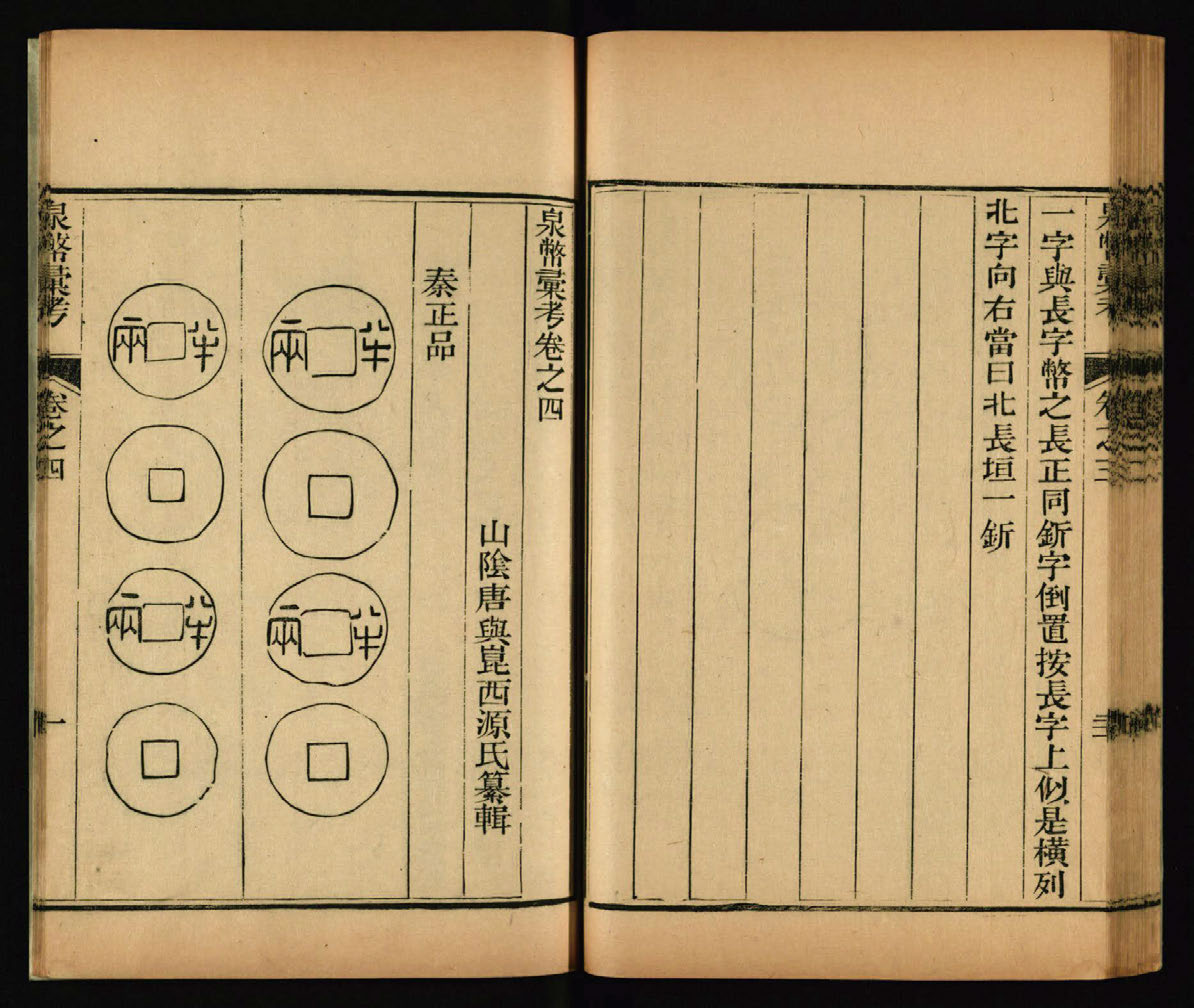 一字與長字幣之長正同釿字倒置按長字上似是橫列
北字向右當曰北長垣一釿
泉幣彚考卷之四
山陰唐與崑西源氏纂輯
秦正品
半兩
半兩
半兩
半兩
泉幣彚考
卷之四
一